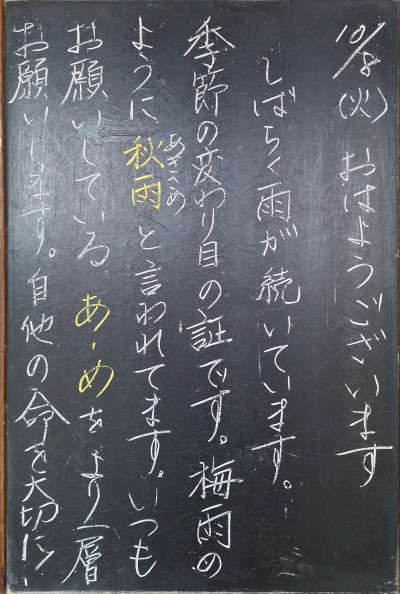 10/8(火) おはようございます
しばらく雨が続いています。
季節の変わり目の証です。梅雨の
ように、秋雨と言われてます。いつも
あきさめ
お願いしている あ・めをより一層
お願いします。自他の命を大切に!